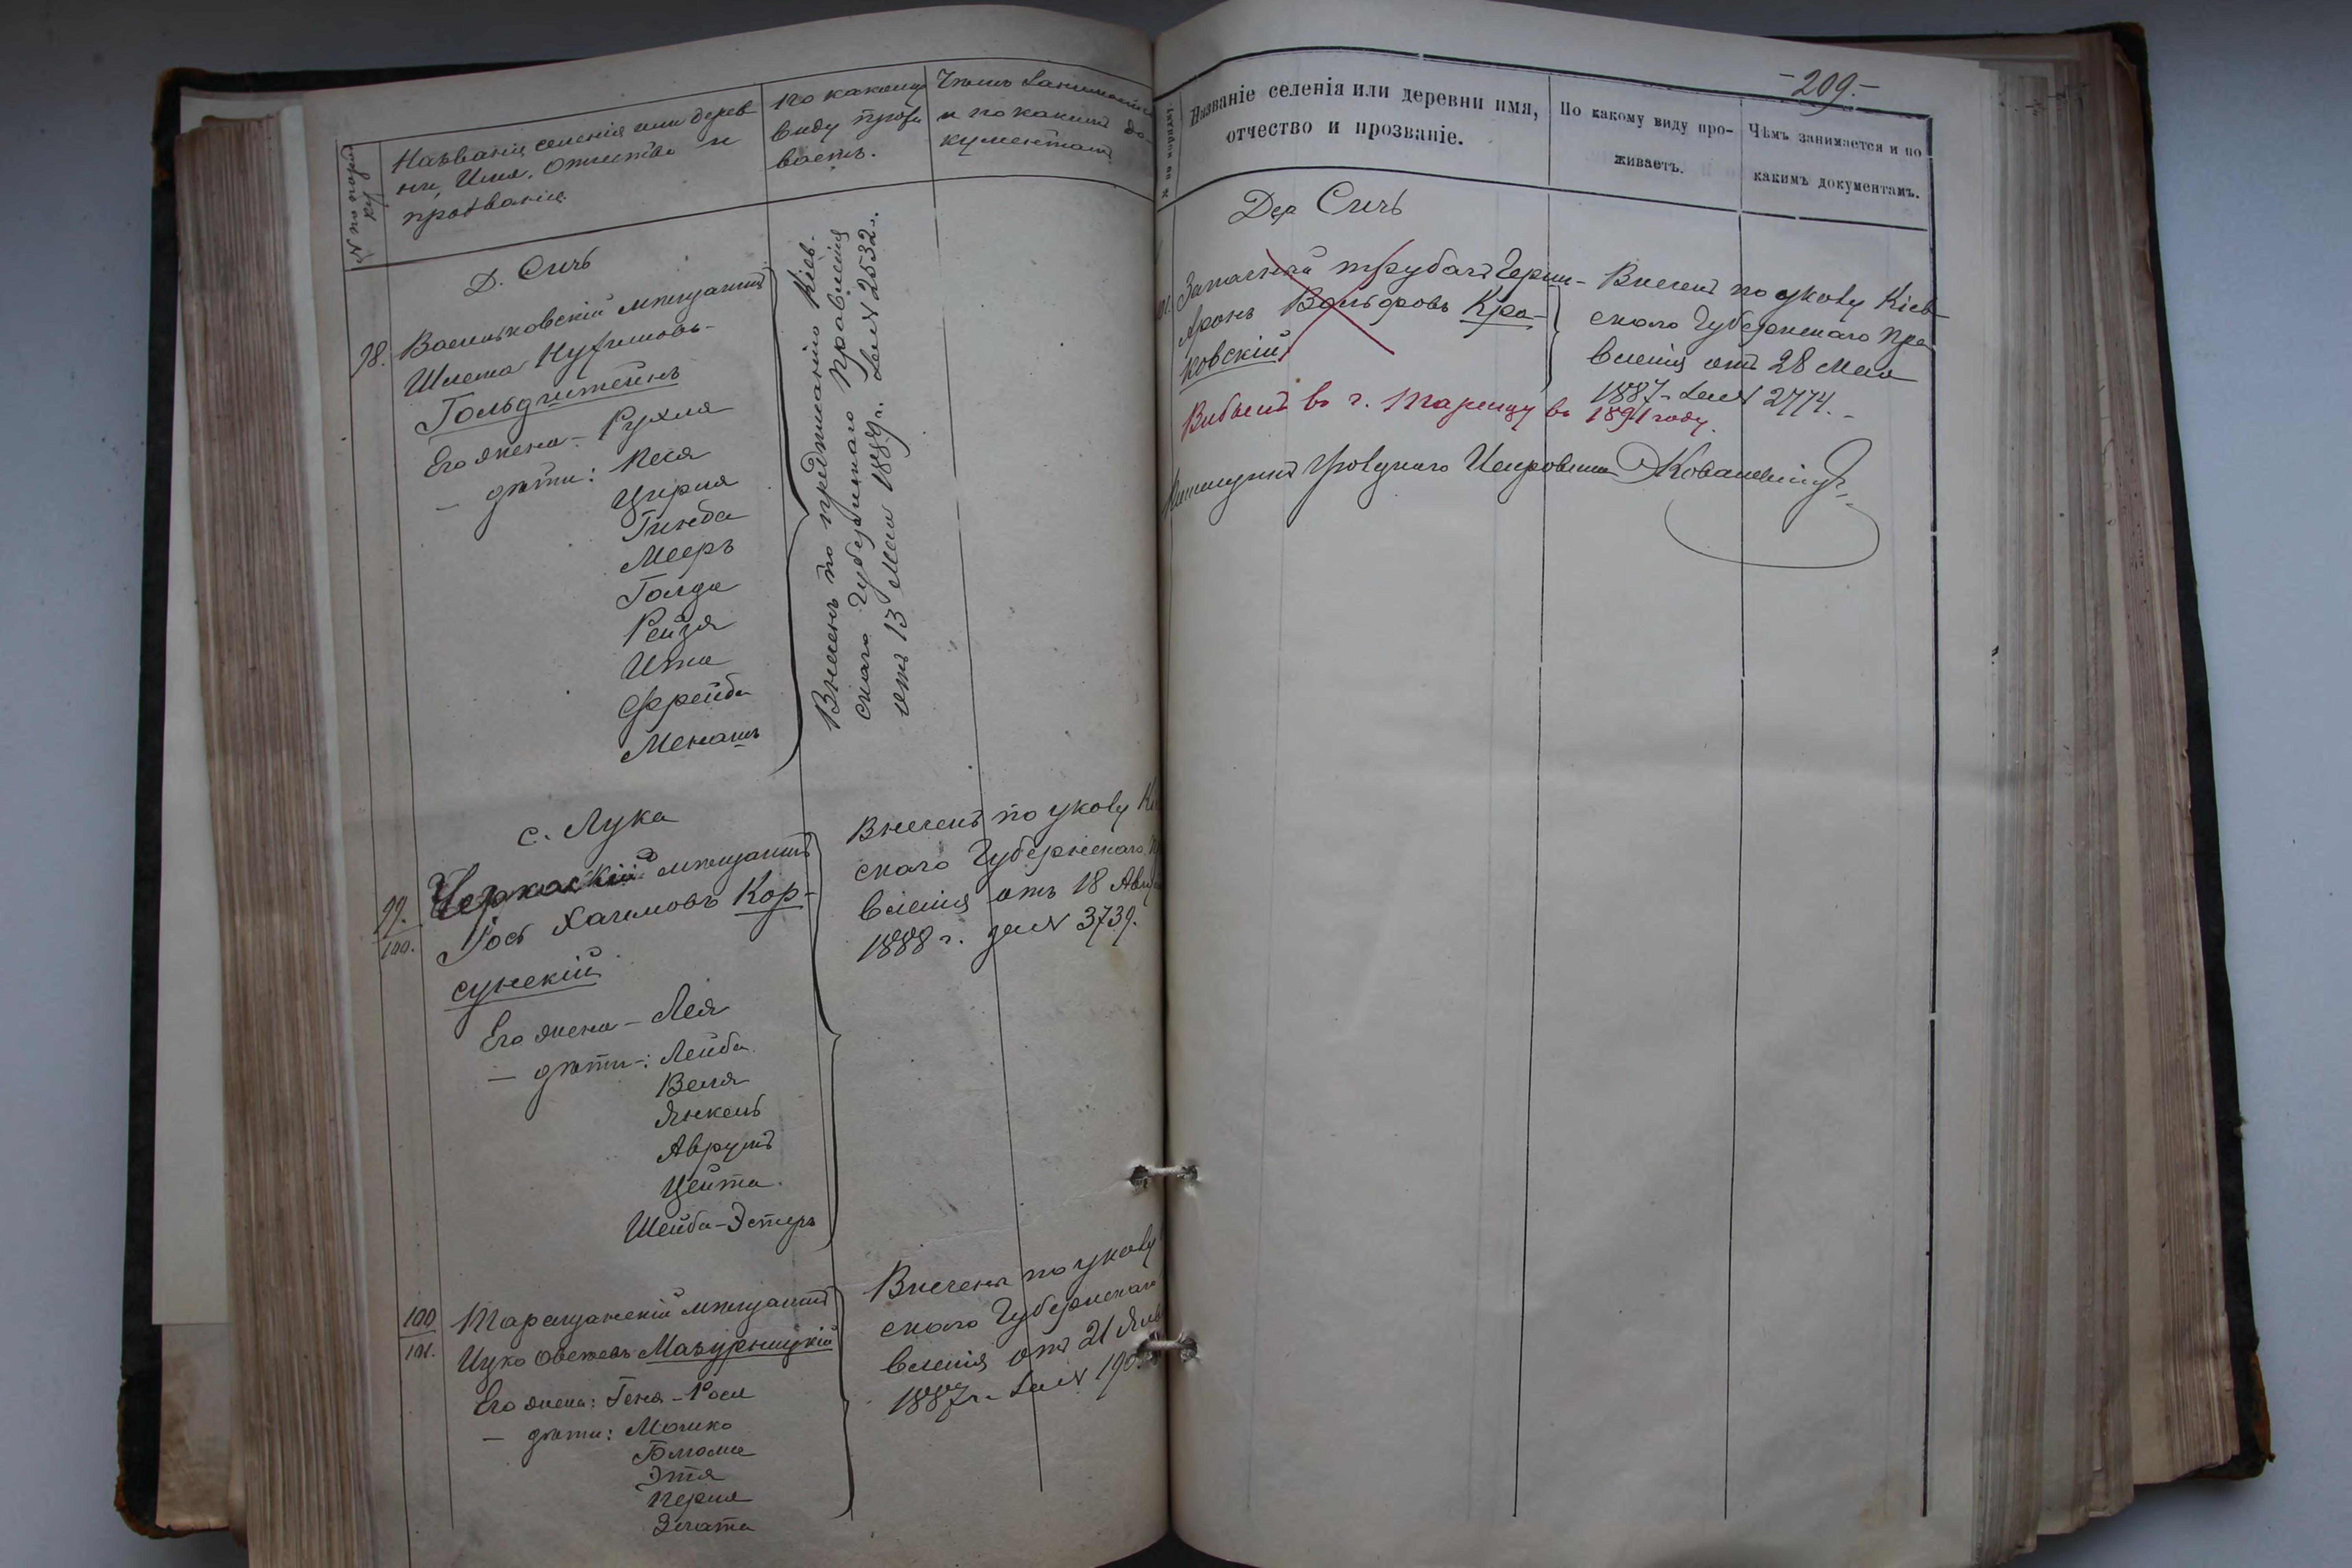 № по поряд
ку
Названіе селенія или дерев
ни, Имя, отчество и
прозваніе.
По какому
виду прожи
ваетъ.
Чѣмъ занимается
и по какимъ до-
кументамъ
Д. Сичь
98. Васильковскій мѣщанинъ
Шлема Нухимовъ-
Гольдштейнъ
Его жена - Рухля
— дѣти: Песя
Цирля
Гинда
Мееръ
Голда
Рейзя
Ита
Фрейда
Менашъ
Внесенъ по предписанію Кіев-
скаго Губернскаго Правленія
отъ 13 Мая 1889 г. за № 2532.
с. Лука
99.
100.
Черкаскій мѣщанинъ
Іось Хаимовъ Кор-
сунскій
Его жена - Лея
— дѣти: Лейба
Веля
Янкель
Аврумъ
Цейта
Шейба-Эстеръ
Внесенъ по указу Кі
скаго Губернскаго П
вленія отъ 18 Авгу
1888 г. за № 3739.
100
101.
Таращанскій мѣщанинъ
Ицко Овсеевъ Мазурницкій
Его жена: Геня-Рося
— дѣти: Мошко
Этя
Перля
Злата
Внесенъ по указу
скаго Губернскаго
вленія отъ 21 Янв
1887 г. за № 190
-209.-
№ по порядку
Названіе селенія или деревни имя,
отчество и прозваніе.
По какому виду про-
живаетъ.
Чѣмъ занимается и по
какимъ документамъ.
Дер Сичь
101. Запасный трубачъ Герш-
Аронъ Вольфовъ Кра-
ковскій
Внесенъ по указу Кіев-
скаго Губернскаго Пра
вленія отъ 28 Мая
1887 - за № 2774. -
Выбылъ въ г. Таращу въ 1891 году.
Помощникъ Уѣзднаго Исправника Ковалевскій